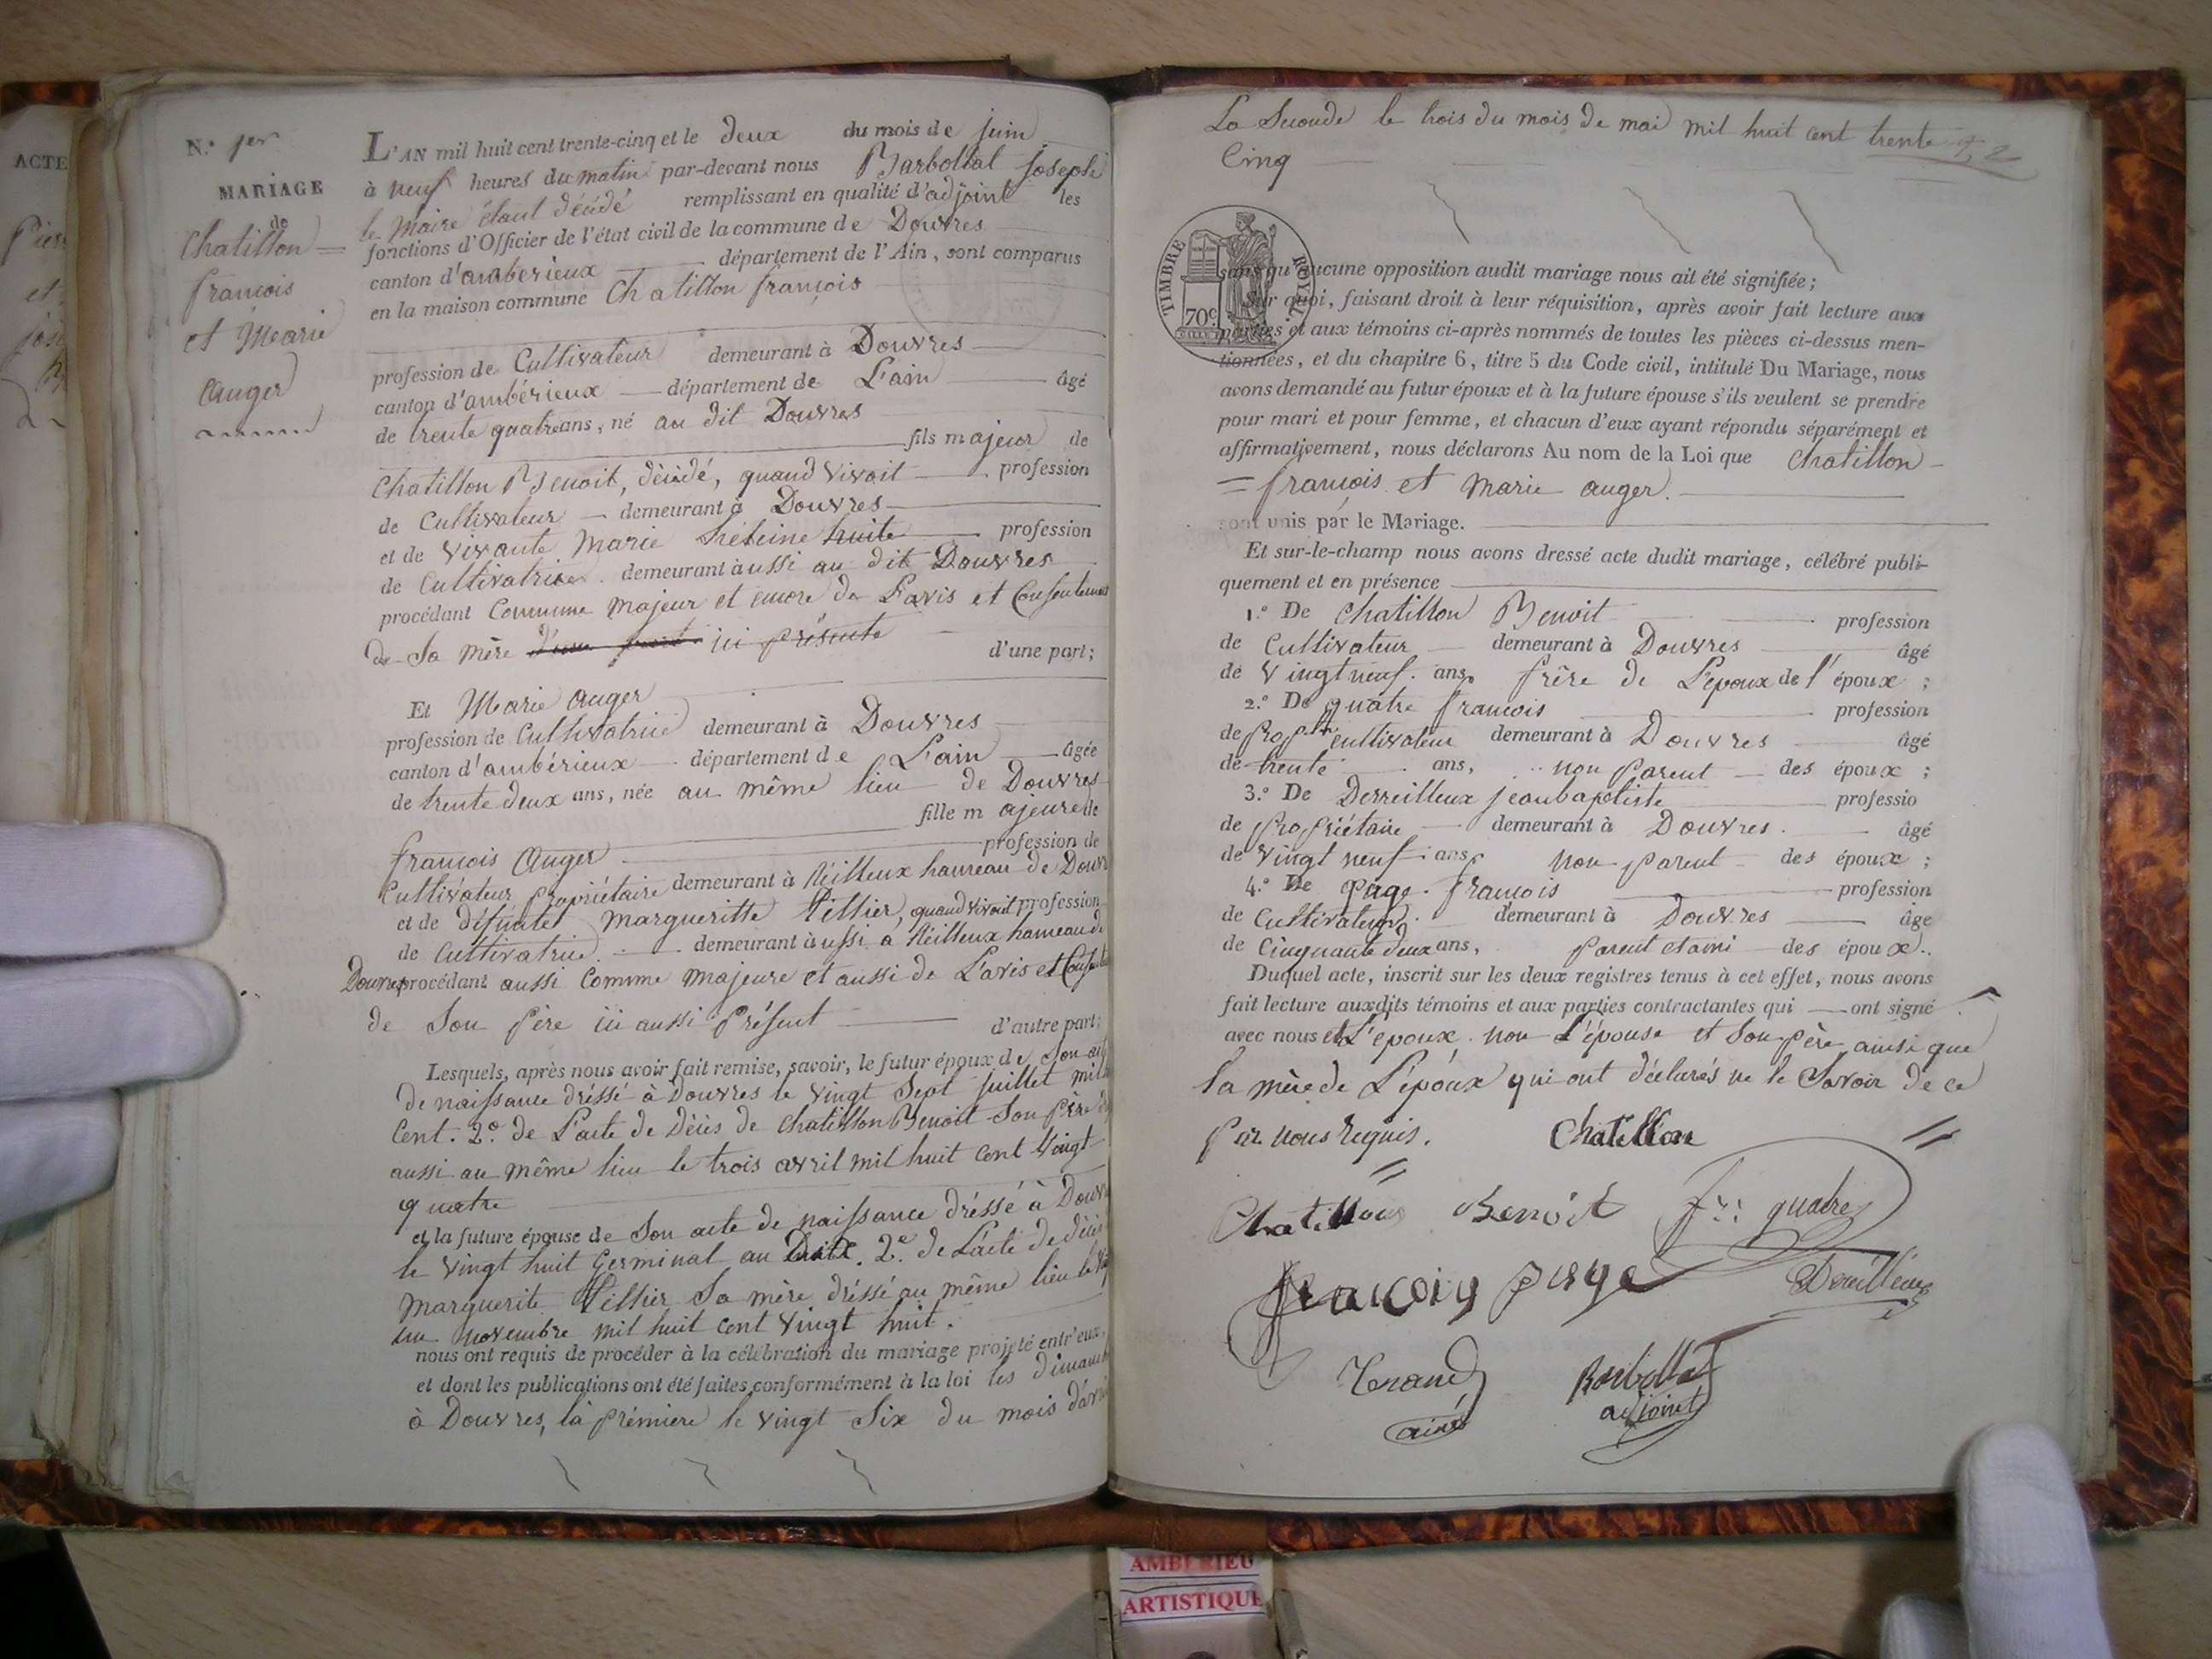 ACTE
N.° 1er
MARIAGE
de
Chatillon =
françois
et Marie
Auger
L'AN mil huit cent trente-cinq et le deux du mois de juin
à neuf heures du matin par-devant nous Barbollat joseph
le Maire étant décédé remplissant en qualité d'adjoint les
fonctions d'Officier de l'état civil de la commune de Douvres
canton d'amberieux département de l'Ain, sont comparus
en la maison commune Chatillon françois
profession de Cultivateur demeurant à Douvres
canton d'ambérieux département de L'ain âgé
de trente quatre ans, né au dit Douvres
fils majeur de
Chatillon Benoit, décédé, quand vivait profession
de Cultivateur demeurant à Douvres
et de vivante Marie huite profession
de Cultivatrice demeurant aussi au dit Douvres
procédant Comme majeur et encore de L'avis et Consentement
de Sa mère ici présente d'une part;
Et Marie auger
profession de Cultivatrice demeurant à Douvres
canton d'ambérieux département de L'ain âgée
de trente deux ans, née au même lieu de Douvres
fille majeure de
françois Auger profession de
Cultivateur propriétaire demeurant à hameau de Douv
et de défunte Margueritte Tillier, quand vivait profession
de Cultivatrice demeurant aussi à hameau de
Douvres procédant aussi Comme majeure et aussi de L'avis et
de Son Père ici aussi Présent d'autre part;
Lesquels, après nous avoir fait remise, savoir, le futur époux de Son
de naissance dréssé à Douvres le vingt Sept juillet mil
Cent. 2° de L'acte de Décès de Chatillon Benoit Son Père
aussi au même lieu le trois avril mil huit Cent Vingt
quatre
et la future épouse de Son acte de naissance dréssé à Douv
le vingt huit Germinal an 2° de L'acte de décès
Marguerite Tillier Sa mère dréssé au même lieu le
un novembre mil huit cent vingt huit.
nous ont requis de procéder à la célébration du mariage projeté entr'eux,
et dont les publications ont été faites conformément à la loi les dimanch
à Douvres, la prémiere le vingt Six du mois d'avri
La Seconde le trois du mois de mai mil huit cent trente
Cinq
TIMBRE ROYAL
70c
sans qu'aucune opposition audit mariage nous ait été signifiée;
Sur quoi, faisant droit à leur réquisition, après avoir fait lecture aux
parties et aux témoins ci-après nommés de toutes les pièces ci-dessus men-
tionnées, et du chapitre 6, titre 5 du Code civil, intitulé Du Mariage, nous
avons demandé au futur époux et à la future épouse s'ils veulent se prendre
pour mari et pour femme, et chacun d'eux ayant répondu séparément et
affirmativement, nous déclarons Au nom de la Loi que Chatillon
= françois et Marie auger.
sont unis par le Mariage.
Et sur-le-champ nous avons dressé acte dudit mariage, célébré publi-
quement et en présence
1.° De Chatillon Benoit profession
de Cultivateur demeurant à Douvres âgé
de vingt neuf ans, frère de L'époux de l'époux;
2.° De quatre françois profession
de cultivateur demeurant à Douvres âgé
de trente ans, non parent des époux;
3.° De Derreilleux jeanbaptiste professio
de propriétaire demeurant à Douvres. âgé
de vingt neuf ans, non parent des époux;
4.° De page françois profession
de Cultivateur demeurant à Douvres âgé
de Cinquante deux ans, parent et ami des époux.
Duquel acte, inscrit sur les deux registres tenus à cet effet, nous avons
fait lecture auxdits témoins et aux parties contractantes qui ont signé
avec nous et L'époux non L'épouse et Son père ainsi que
la mère de L'époux qui ont déclarés ne le Savoir de ce
Par nous requis. Chatillon
Chatillon Benoit fr: quatre
francois page
ainé
Barbollat
adjoint
AMBERIEU
ARTISTIQUE